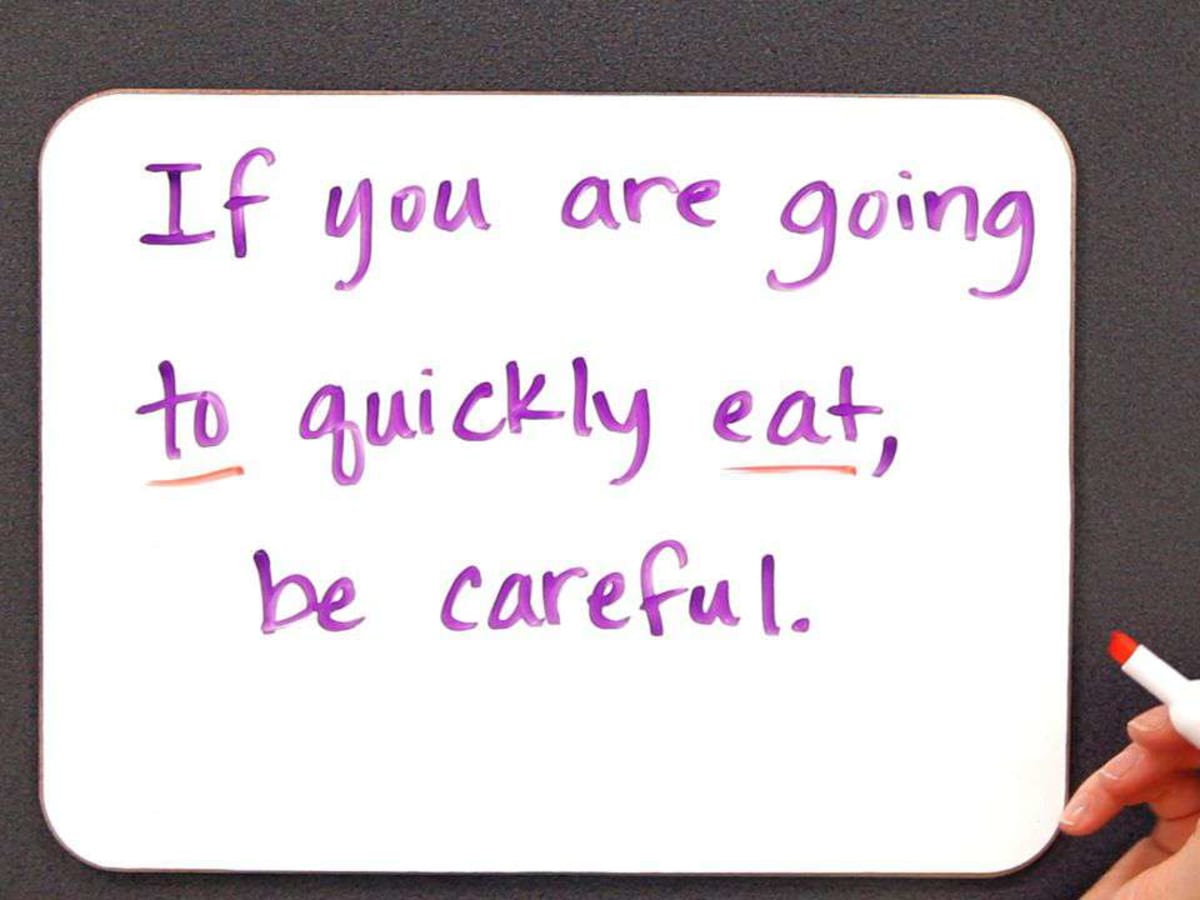 If you are going
to quickly eat,
be careful.